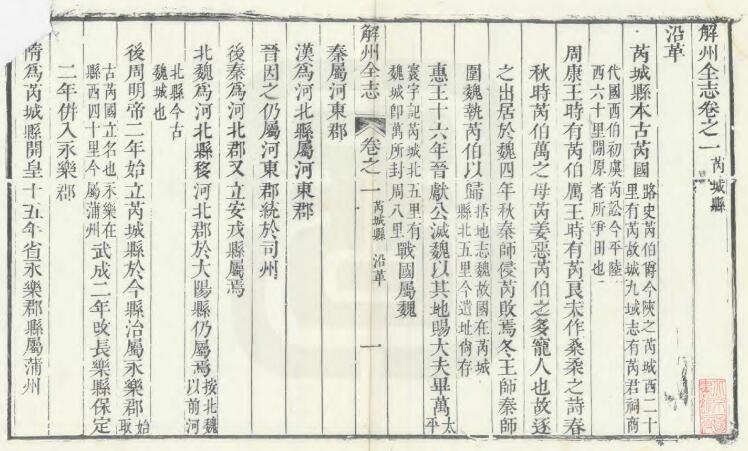 解州全志卷之一 芮城縣
沿革
芮城縣本古芮國 路史芮伯爵今陜之芮城西二十
里有芮故城九域志有芮君祠商
代國西伯初虞芮訟今平陸
西六十里閒原者所爭田也
周康王時有芮伯厲王時有芮良夫作桑柔之詩春
秋時芮伯萬之母芮姜惡芮伯之多寵人也故逐
之出居於魏四年秋秦師侵芮敗焉冬王師秦師
圍魏執芮伯以歸 括地志魏故國在芮城
縣北五里今遺址尙存
惠王十六年晉獻公滅魏以其地賜大夫畢萬 太
平
寰宇記芮城北五里有
魏城卽萬所封周八里 戰國屬魏
解州全志 卷之一 芮城縣 沿革 一
秦屬河東郡
漢爲河北縣屬河東郡
晉因之仍屬河東郡統於司州
後秦爲河北郡又立安戎縣屬焉
北魏爲河北縣移河北郡於大陽縣仍屬焉 按北魏
以前河
北縣今古
魏城也
後周明帝二年始立芮城縣於今縣治屬永樂郡 始
取
古芮國立名也永樂在
縣西四十里今屬蒲州 武成二年改長樂縣保定
二年併入永樂郡
隋爲芮城縣開皇十五年省永樂郡縣屬蒲州